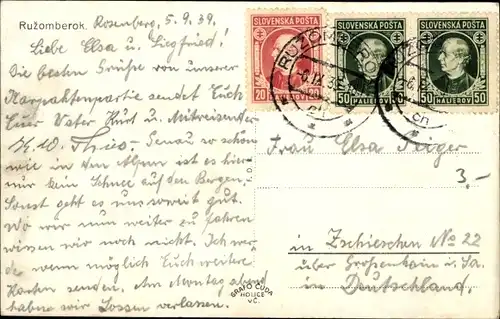 Ružomberok. Rosenberg, 5.9.39.
Liebe Elsa u. Siegfried!
Die besten Grüße von unserer
Karpathenpartie sendet Euch
Euer Vater Kurt u. Mitreisender
Genau so schön
wie in den Alpen ist es hier
nur kein Schnee auf den Bergen.
Sonst geht es uns soweit gut.
Wo wir nun weiter zu fahren
wissen wir noch nicht. Ich wer-
de wenn möglich Euch weitere
Karten senden. Am Montag abend
haben wir verlassen.
SLOVENSKÁ POŠTA
20 HALIEROV 20
SLOVENSKÁ POŠTA
50 HALIEROV 50
SLOVENSKÁ POŠTA
50 HALIEROV 50
RUŽOMBEROK
Frau Elsa
3,-
in Zschieschen No 22
über Großenhain i. Sa.
in Deutschland.
GRAFO ČUDA
HOLICE
VČ.